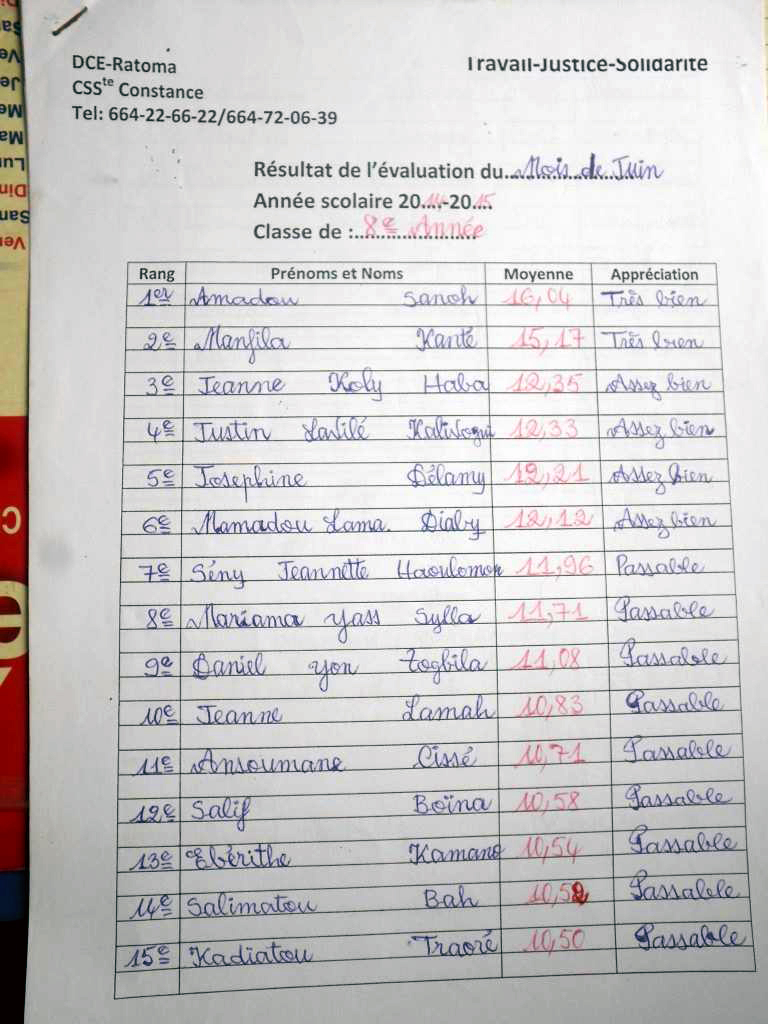 DCE-Ratoma Travail-Justice-Solidarité
CSSte Constance
Tel: 664-22-66-22/664-72-06-39
Résultat de l'évaluation du Mois de Juin
Année scolaire 2014-2015
Classe de : 8e Année
Rang Prénoms et Noms Moyenne Appréciation
1er Amadou Sanoh 16,04 Très bien
2e Manfila Kanté 15,17 Très bien
3e Jeanne Koly Haba 12,35 Assez bien
4e Justin Kalivogui 12,33 Assez bien
5e Josephine Délamy 12,21 Assez bien
6e Mamadou Lama. Diaby 12,12 Assez bien
7e Sény Jeannette Haoulomon 11,96 Passable
8e Mariama Yass Sylla 11,71 Passable
9e Daniel Yon Zogbila 11,08 Passable
10e Jeanne Lamah 10,83 Passable
11e Ansoumane Cissé 10,71 Passable
12e Salif Boïna 10,58 Passable
13e Ebérithe Kamano 10,54 Passable
14e Salimatou Bah 10,52 Passable
15e Kadiatou Traoré 10,50 Passable